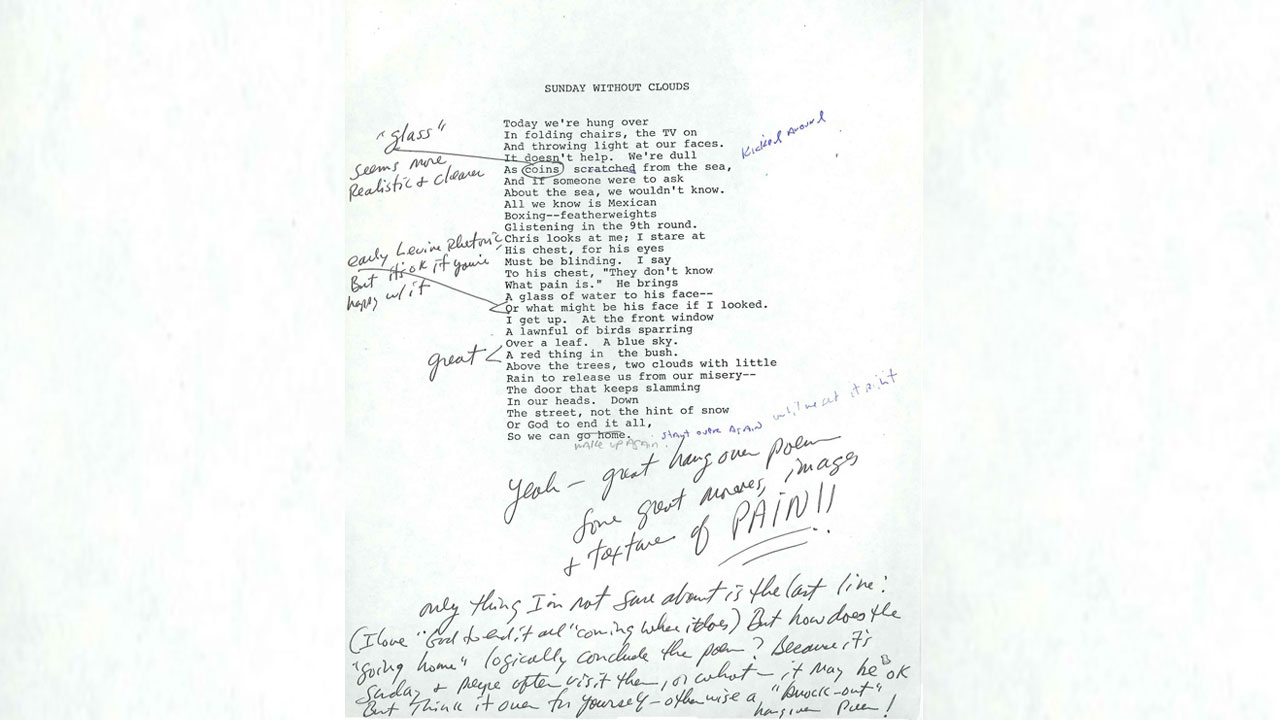 SUNDAY WITHOUT CLOUDS
"glass"
seems more
Realistic & clearer
Kicked Around
Today we're hung over
In folding chairs, the TV on
And throwing light at our faces.
It doesn't help.  We're dull
As coins scratched from the sea,
And if someone were to ask
About the sea, we wouldn't know.
All we know is Mexican
Boxing--featherweights
Glistening in the 9th round.
Chris looks at me; I stare at
His chest, for his eyes
Must be blinding.  I say
To his chest, "They don't know
What pain is."  He brings
A glass of water to his face--
Or what might be his face if I looked.
I get up.  At the front window
A lawnful of birds sparring
Over a leaf.  A blue sky.
A red thing in  the bush.
Above the trees, two clouds with little
Rain to release us from our misery--
The door that keeps slamming
In our heads.  Down
The street, not the hint of snow
Or God to end it all,
So we can go home.
early Levine Rhetoric
But it's ok if you're
happy w/ it
great
wake up again
start over again
Yeah – great hangover poem
Some great moves, images
& texture of PAIN!!
only thing I'm not sure about is the last line:
(I love "God to end it all" coming when it does) But how does the
"going home" logically conclude the poem? Because it's
Sunday & people often visit then, or what – it may be ok
But think it over for yourself – otherwise a "knock-out"
hangover Poem!